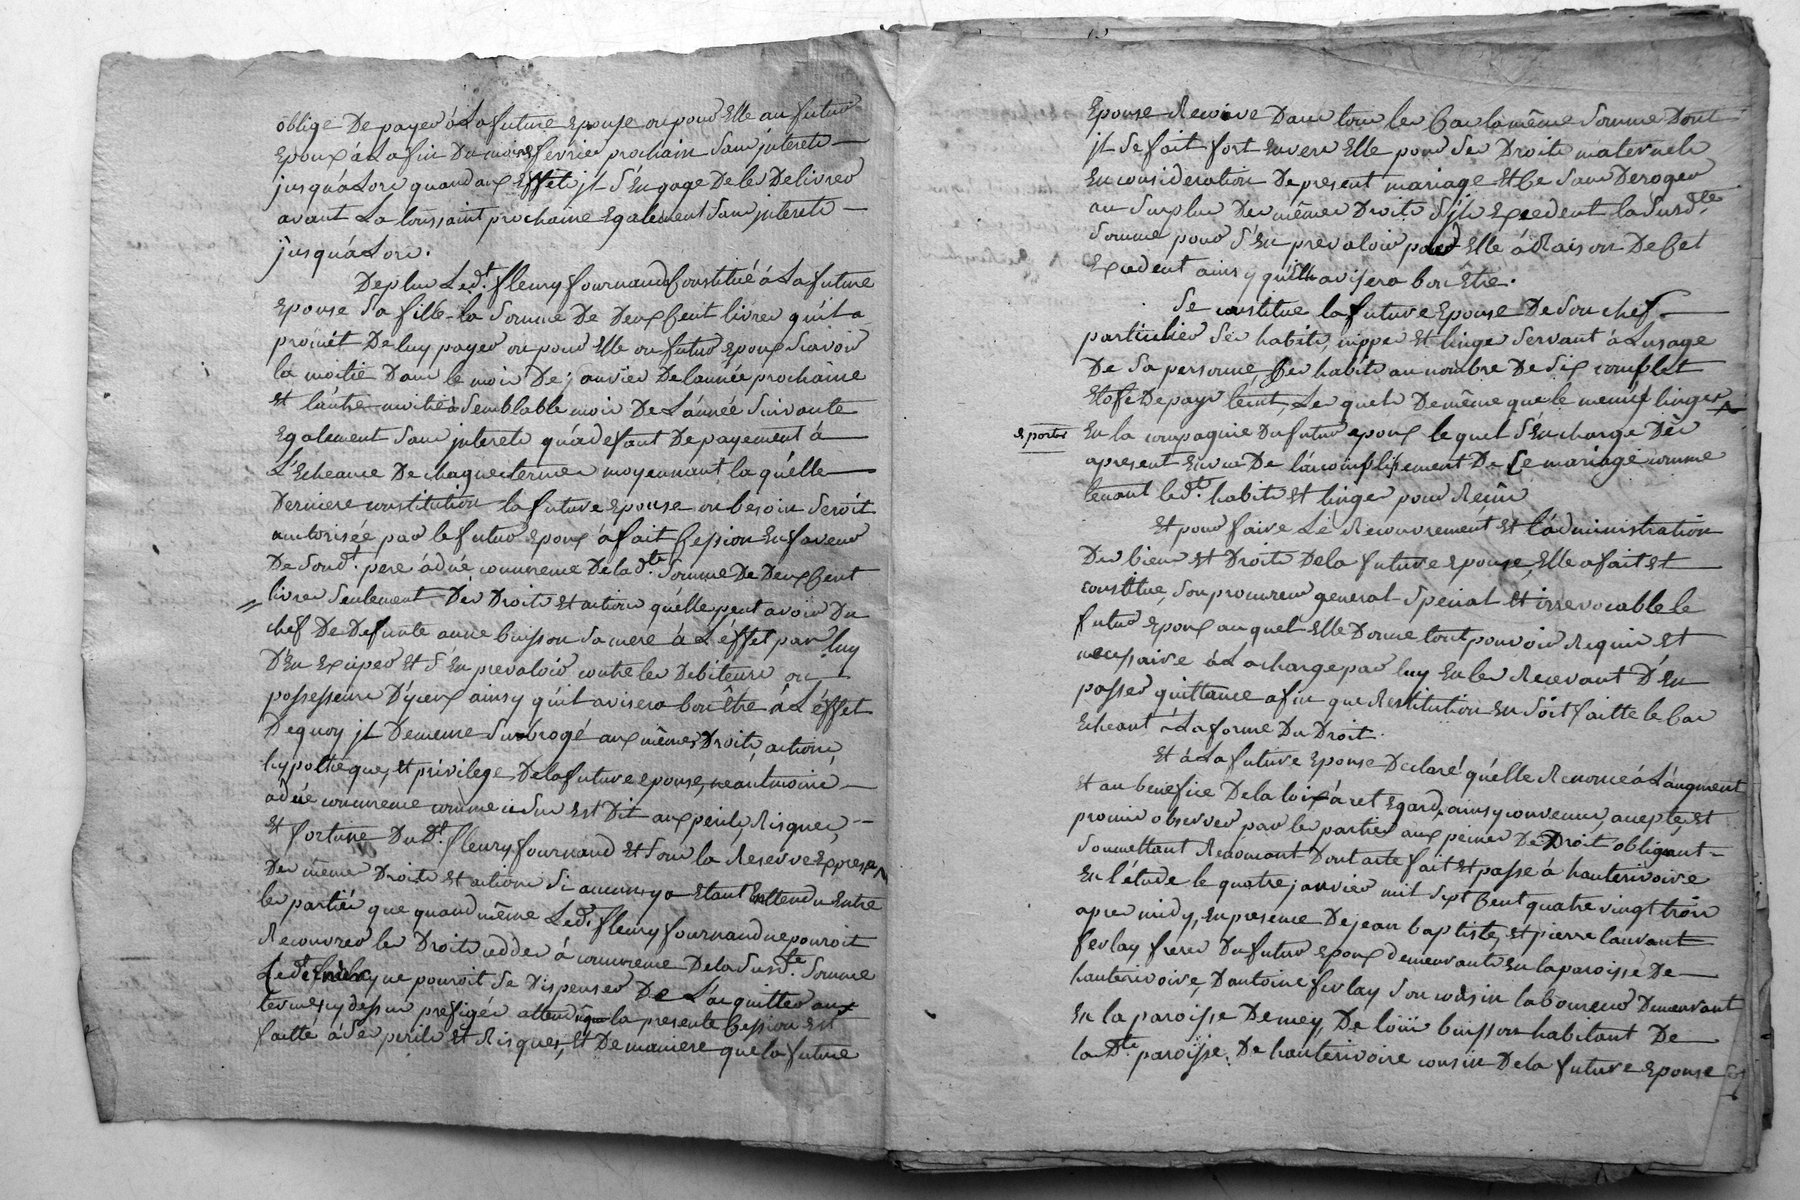 oblige De payer à La future Epouse ou pour Elle au futur
Epoux à La fin Du mois fevrier prochain Sans jnterets
jusqu'a Lors quand aux Effets jl S'Engage De les Delivrer
avant La toussaint prochaine Egalement Sans jnterets
jusqu'a Lors.
Deplus Led.t fleury fournand Constitué à La future
Epouse Sa fille la Somme De Deux Cent livres qu'il a
promet De luy payer ou pour Elle au futur Epoux Scavoir
la moitie Dans le mois De janvier De lannée prochaine
et l'autre moitié à Semblable mois De L'année Suivante
Egalement Sans jnterets qu'a defaut De payement à
L'Echeance De chaque termes moyennant la qu'elle
Derniere constitution la future Epouse au besoin Seroit
autorisée par le futur Epoux à fait Cession En faveur
De Sond.t pere a düe concurence De la d.te Somme De Deux Cent
livres Seulement Des Droits et actions qu'elle peut avoir Du
chef De Defunte anne buisson Sa mere à L'éffet par luy
D'En Exciper et S'En prevaloir contre les Debiteurs ou
possesseurs D'yceux ainsy qu'il avisera bon Etre à L'éffet
Dequoy jl Demeure Subrogé aux mêmes Droits, actions,
hypotheques, et privilege De la future epouse, neantmoins
a düe concurence comme cy Sur est Dit aux perils, Risques,
et fortune Du D.t fleury fournand et Sous la Reserve Expresse
Des même Droits et actions Si aucuns y a Etant Entendu Entre
les parties que quand même Led.t fleury fournand ne pouroit
Recouvrer les Droits cedder à concurence De la Susd.te Somme
Led.t ne pouroit Se Dispenser De L'acquitter aux
termes cy dessus prefigés attendu que la presente Cession est
faitte à Ses perils et Risques, et De maniere que la future
Epouse Reçoive Dans tous les Cas la même Somme Dont
jl Se fait fort Envers Elle pour Ses Droits maternels
En consideration De present mariage et Ce Sans Deroger
au Surplus Des mêmes Droits S'jls Excedent la Susd.te
Somme pour S'En prevaloir par Elle à Raison De Cet
Excedent ainsy qu'Elle avisera bon Etre.
Se constitue la future Epouse De Son chef
particulier Ses habits, nippes et linges Servant à Lusage
De Sa personne, Ces habits au nombre De Six complet
Etofe De pays teint, Les quels De même que le menüe linges
à porter
En la compagnie Du futur epoux le quel S'En charge Dès
apresent En vue De l'accomplissement De Ce mariage comme
tenant led.ts habits et linges pour Recûs
Et pour faire Le Recouvrement et l'administration
Des biens et Droits De la future Epouse, Elle a fait et
constitue, Son procureur general Special et irrevocable le
futur Epoux au quel Elle Donne tout pouvoir Requis et
necessaire à La charge par luy En les Recevant D'En
passer quittance afin que Restitution En Soit faitte le Cas
Echeant à La forme Du Droit.
Et à La future Epouse Declaré qu'elle Renonce à L'augment
et au benefice De la loix à cet Egard, ainsy convenus, accepté et
promis observer par les parties aux peines De Droit obligeant
Soumettant Renoncant Dont acte fait et passe à hauterivoire
En l'étude le quatre janvier mil Sept Cent quatre vingt trois
apres midy, En presence De jean baptiste, et pierre lauvant
ferlay freres Du futur Epoux demeurants En la paroisse De
hauterivoire, D'antoine ferlay Son cousin laboureur Demeurant
En la paroisse De mey, De loüis buisson habitant De
la D.te paroisse De hauterivoire cousin De la future Epouse